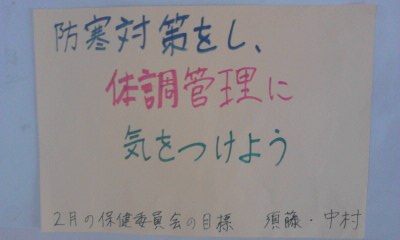 防寒対策をし、
体調管理に
気をつけよう
2月の保健委員会の目標 須藤・中村